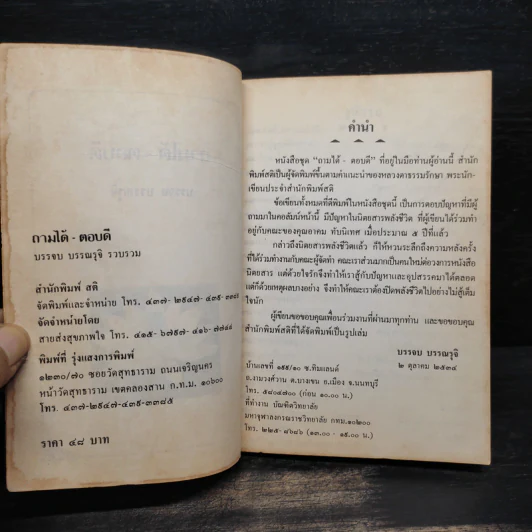 ถามได้ - ตอบดี
บรรจบ บรรณรุจิ รวบรวม
สำนักพิมพ์ สติ
จัดพิมพ์และจำหน่าย โทร. ๔๓๗-๒๙๔๗-๔๓๙-๓๓๘๕
จัดจำหน่ายโดย
สายส่งสุขภาพใจ โทร. ๔๑๕-๖๗๙๗-๔๑๖-๗๗๔๔
พิมพ์ที่ รุ่งแสงการพิมพ์
๑๒๓๐/๗๐ ซอยวัดสุทธาราม ถนนเจริญนคร
หน้าวัดสุทธาราม เขตคลองสาน ก.ท.ม. ๑๐๖๐๐
โทร. ๔๓๗-๒๙๔๗-๔๓๙-๓๓๘๕
ราคา ๔๘ บาท
คำนำ
หนังสือชุด "ถามได้ - ตอบดี" ที่อยู่ในมือท่านผู้อ่านนี้ สำนัก
พิมพ์สติเป็นผู้จัดพิมพ์ขึ้นตามคำแนะนำของหลวงตาธรรมรักษา พระนัก-
เขียนประจำสำนักพิมพ์สติ
ข้อเขียนทั้งหมดที่ตีพิมพ์ในหนังสือชุดนี้ เป็นการตอบปัญหาที่มีผู้
ถามมาในคอลัมน์หน้านี้ มีปัญหาในนิตยสารพลังชีวิต ที่ผู้เขียนได้ร่วมทำ
อยู่กับคณะของคุณอาคม ทับนิเทศ เมื่อประมาณ ๕ ปีที่แล้ว
กล่าวถึงนิตยสารพลังชีวิตแล้ว ก็ให้หวนระลึกถึงความหลังครั้ง
ที่ได้ร่วมทำงานกับคณะผู้จัดทำ คณะเราส่วนมากเป็นคนใหม่ต่อวงการหนังสือ
นิตยสาร แต่ด้วยใจรักจึงทำให้เราสู้กับปัญหาและอุปสรรคมาได้ตลอด
แต่ด้วยเหตุผลบางอย่าง จึงทำให้คณะเราต้องปิดพลังชีวิตไปอย่างไม่สู้เต็ม
ใจนัก
ผู้เขียนขอขอบคุณเพื่อนร่วมงานที่ผ่านมาทุกท่าน และขอขอบคุณ
สำนักพิมพ์สติที่ได้จัดพิมพ์เป็นรูปเล่ม
บรรจบ บรรณรุจิ
๒ ตุลาคม ๒๕๓๔
บ้านเลขที่ ๑๙๙/๑๐ ซ.ทิมแลนด์
ถ.งามวงศ์วาน ต.บางเขน อ.เมือง จ.นนทบุรี
โทร. ๕๘๐๔๗๐๐ (ก่อน ๑๐.๐๐ น.)
ที่ทำงาน บัณฑิตวิทยาลัย
มหาจุฬาลงกรณราชวิทยาลัย กทม.๑๐๒๐๐
โทร. ๒๒๕-๘๖๘๖ (๑๓.๐๐ - ๑๙.๐๐ น.)